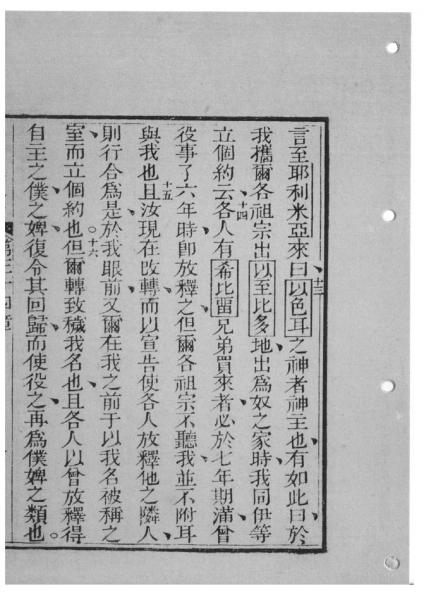 言至耶利米亞來曰十三以色耳之神者神主也有如此曰於
我攜爾各祖宗出以至比多地出為奴之家時我同伊等
立個約云十四各人有希比畱兄弟買來者必於七年期滿曾
役事了六年時即放釋之但爾各祖宗不聽我並不附耳
與我也十五且汝現在改轉而以宣告使各人放釋他之隣人
則行合為是於我眼前又爾在我之前于以我名被稱之
室而立個約也。十六但爾轉致穢我名也且各人以曾放釋得
自主之僕之婢復令其回歸而使役之再為僕婢之類也。
第三十四章